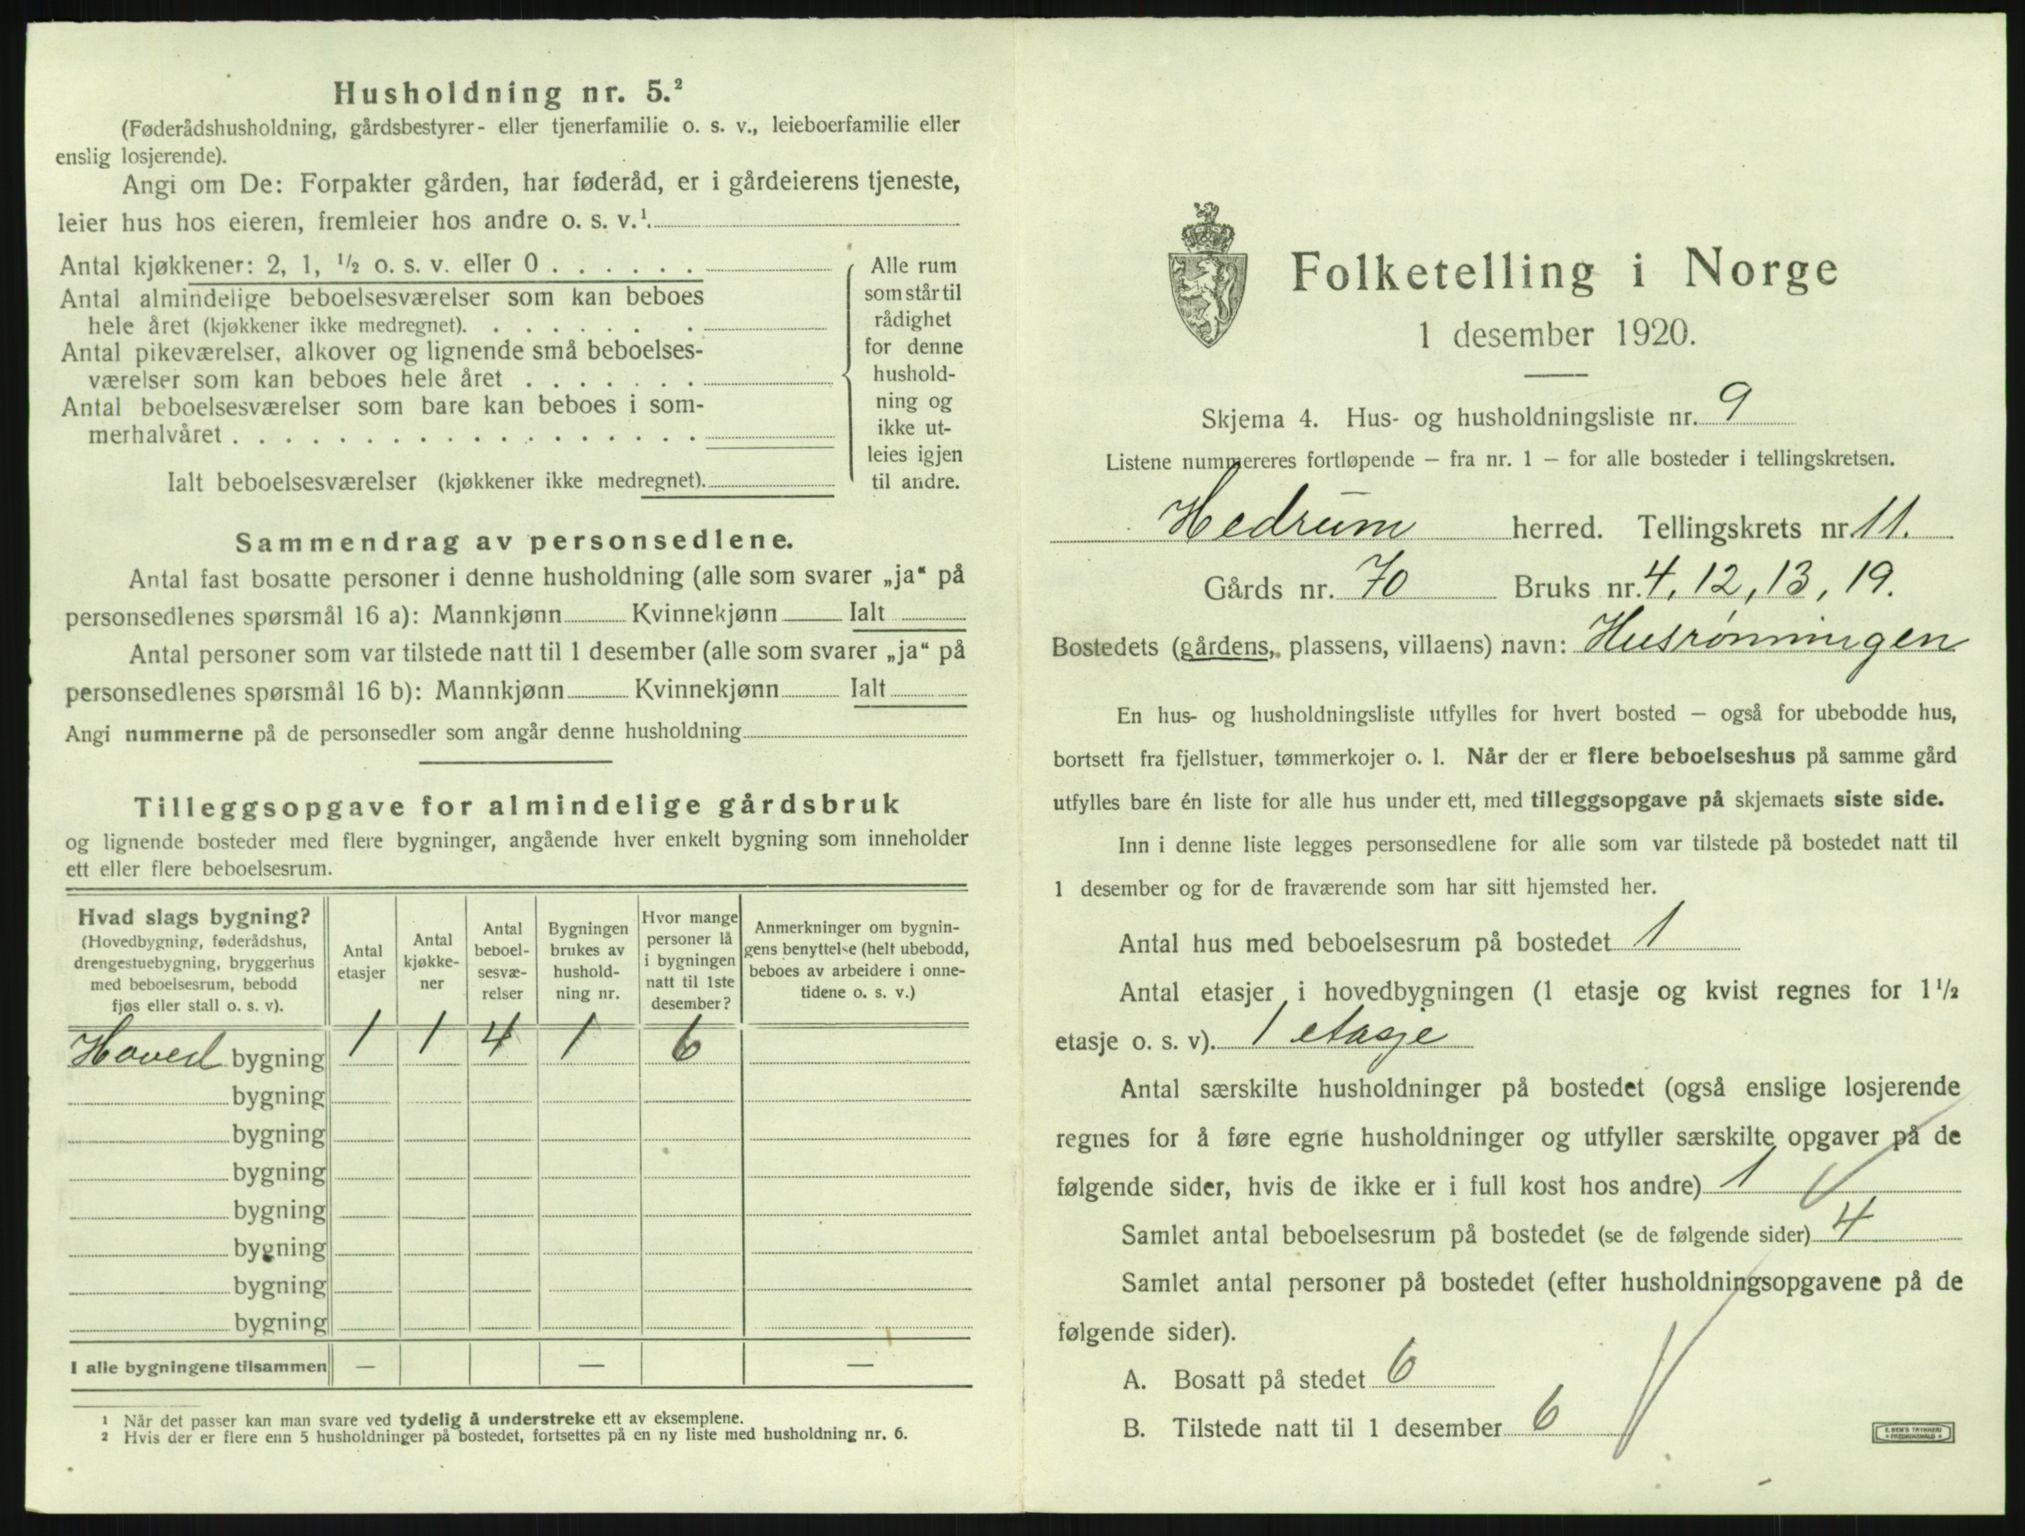 Husholdning nr. 5.²
(Føderådshusholdning, gårdsbestyrer- eller tjenerfamilie o. s. v., leieboerfamilie eller
enslig losjerende).
Angi om De: Forpakter gården, har føderåd, er i gårdeierens tjeneste,
leier hus hos eieren, fremleier hos andre o. s. v.¹
Antal kjøkkener: 2, 1, ½ o. s. v. eller 0 . . . . . .
Antal almindelige beboelsesværelser som kan beboes
hele året (kjøkkener ikke medregnet). . . . . . . .
Antal pikeværelser, alkover og lignende små beboelses-
værelser som kan beboes hele året . . . . . . .
Antal beboelsesværelser som bare kan beboes i som-
merhalvåret . . . . . . . . . . . . . . . . . .
Ialt beboelsesværelser (kjøkkener ikke medregnet).
Alle rum
som står til
rådighet
for denne
hushold-
ning og
ikke ut-
leies igjen
til andre.
Sammendrag av personsedlene.
Antal fast bosatte personer i denne husholdning (alle som svarer „ja“ på
personsedlenes spørsmål 16 a): Mannkjønn Kvinnekjønn Ialt
Antal personer som var tilstede natt til 1 desember (alle som svarer „ja“ på
personsedlenes spørsmål 16 b): Mannkjønn Kvinnekjønn Ialt
Angi nummerne på de personsedler som angår denne husholdning
Tilleggsopgave for almindelige gårdsbruk
og lignende bosteder med flere bygninger, angående hver enkelt bygning som inneholder
ett eller flere beboelsesrum.
Hvad slags bygning?
(Hovedbygning, føderådshus,
drengestuebygning, bryggerhus
med beboelsesrum, bebodd
fjøs eller stall o. s. v).
Antal
etasjer
Antal
kjøkke-
ner
Antal
beboel-
sesvæ-
relser
Bygningen
brukes av
hushold-
ning nr.
Hvor mange
personer lå
i bygningen
natt til 1ste
desember?
Anmerkninger om bygnin-
gens benyttelse (helt ubebodd,
beboes av arbeidere i onne-
tidene o. s. v.)
Hoved bygning 1 1 4 1 6
bygning
bygning
bygning
bygning
bygning
bygning
bygning
I alle bygningene tilsammen — — —
¹ Når det passer kan man svare ved tydelig å understreke ett av eksemplene.
² Hvis der er flere enn 5 husholdninger på bostedet, fortsettes på en ny liste med husholdning nr. 6.
Folketelling i Norge
1 desember 1920.
Skjema 4. Hus- og husholdningsliste nr. 9
Listene nummereres fortløpende – fra nr. 1 – for alle bosteder i tellingskretsen.
Hedrum herred. Tellingskrets nr. 11.
Gårds nr. 70 Bruks nr. 4, 12, 13, 19.
Bostedets (gårdens, plassens, villaens) navn: Husrønningen
En hus- og husholdningsliste utfylles for hvert bosted – også for ubebodde hus,
bortsett fra fjellstuer, tømmerkojer o. l. Når der er flere beboelseshus på samme gård
utfylles bare én liste for alle hus under ett, med tilleggsopgave på skjemaets siste side.
Inn i denne liste legges personsedlene for alle som var tilstede på bostedet natt til
1 desember og for de fraværende som har sitt hjemsted her.
Antal hus med beboelsesrum på bostedet 1
Antal etasjer i hovedbygningen (1 etasje og kvist regnes for 1½
etasje o. s. v). 1 etasje
Antal særskilte husholdninger på bostedet (også enslige losjerende
regnes for å føre egne husholdninger og utfyller særskilte opgaver på de
følgende sider, hvis de ikke er i full kost hos andre) 1
Samlet antal beboelsesrum på bostedet (se de følgende sider) 4
Samlet antal personer på bostedet (efter husholdningsopgavene på de
følgende sider).
A. Bosatt på stedet 6
B. Tilstede natt til 1 desember 6